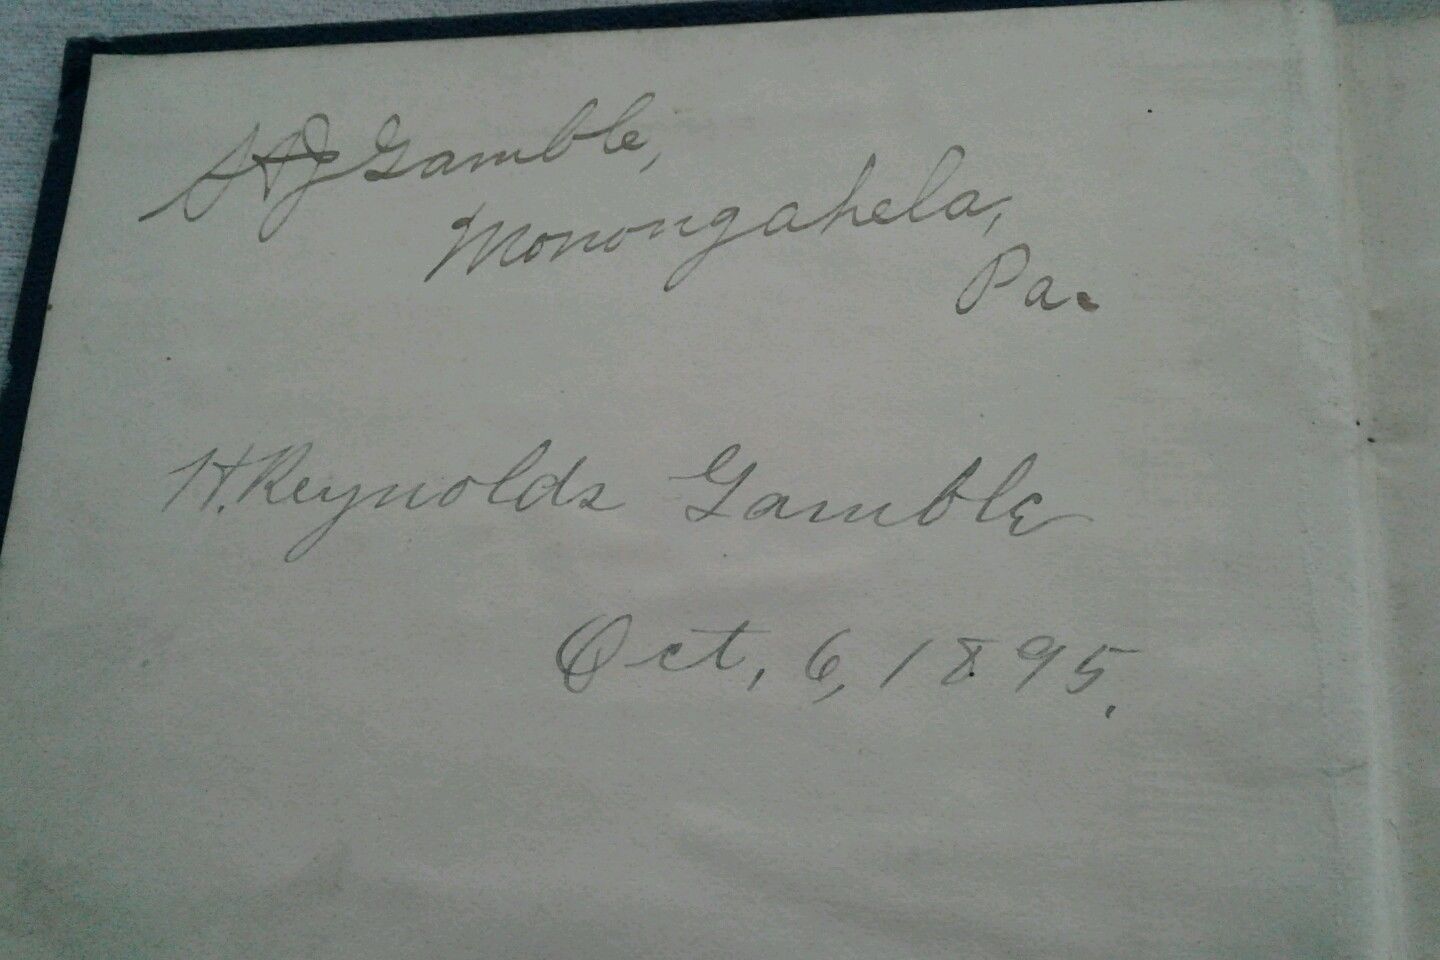 Gamble,
Monongahela,
Pa.
H. Reynolds Gamble
Oct, 6, 1895.